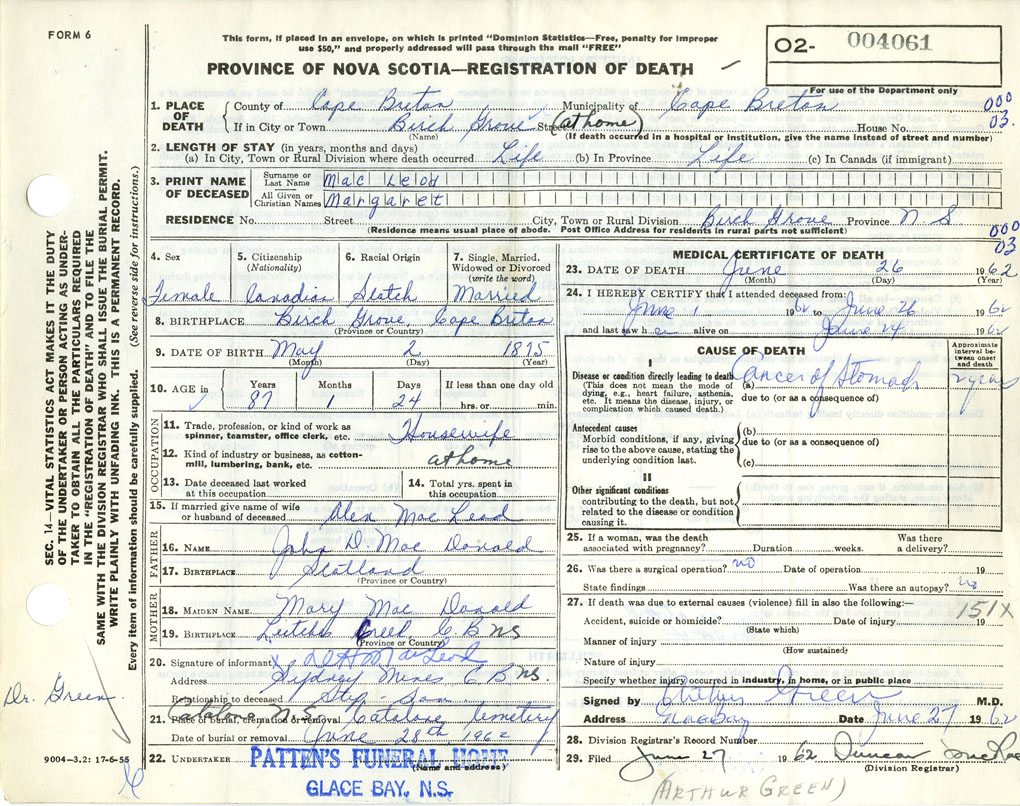 FORM 6
This form, if placed in an envelope, on which is printed "Dominion Statistics—Free, penalty for improper
use $50," and properly addressed will pass through the mail "FREE"
O2- 004061
PROVINCE OF NOVA SCOTIA—REGISTRATION OF DEATH
For use of the Department only
1. PLACE OF DEATH
County of Cape Breton Municipality of Cape Breton 000
If in City or Town Birch Grove Street (at home) House No. 03.
(Name) (If death occurred in a hospital or institution, give the name instead of street and number)
2. LENGTH OF STAY (in years, months and days)
(a) In City, Town or Rural Division where death occurred Life (b) In Province Life (c) In Canada (if immigrant)
3. PRINT NAME OF DECEASED
Surname or Last Name Mac Leod
All Given or Christian Names Margaret
RESIDENCE No. Street City, Town or Rural Division Birch Grove Province N S
(Residence means usual place of abode. Post Office Address for residents in rural parts not sufficient)
000
03
4. Sex 5. Citizenship (Nationality) 6. Racial Origin 7. Single, Married, Widowed or Divorced (write the word)
Female Canadian Scotch Married
8. BIRTHPLACE Birch Grove, Cape Breton
(Province or Country)
9. DATE OF BIRTH May 2 1875
(Month) (Day) (Year)
10. AGE in Years Months Days If less than one day old
87 1 24 hrs. or min.
OCCUPATION
11. Trade, profession, or kind of work as spinner, teamster, office clerk, etc. Housewife
12. Kind of industry or business, as cotton-mill, lumbering, bank, etc. at home
13. Date deceased last worked at this occupation
14. Total yrs. spent in this occupation
15. If married give name of wife or husband of deceased Alex Mac Leod
FATHER
16. NAME John D. Mac Donald
17. BIRTHPLACE Scotland
(Province or Country)
MOTHER
18. MAIDEN NAME Mary Mac Donald
19. BIRTHPLACE Creek, C.B NS
(Province or Country)
20. Signature of informant X MacLeod
Address Sydney Mines C B NS.
Relationship to deceased Step-Son
21. Place of burial, cremation or removal Catalone N.S. Catalone Cemetery
Date of burial or removal June 28th 1962
22. UNDERTAKER PATTEN'S FUNERAL HOME
(Name and address)
GLACE BAY, N.S.
MEDICAL CERTIFICATE OF DEATH
23. DATE OF DEATH June 26 1962
(Month) (Day) (Year)
24. I HEREBY CERTIFY that I attended deceased from:
June 1 1962 to June 26 1962
and last saw h er alive on June 24 1962
CAUSE OF DEATH
Approximate interval between onset and death
I
Disease or condition directly leading to death
(This does not mean the mode of dying, e.g., heart failure, asthenia, etc. It means the disease, injury, or complication which caused death.)
(a) Cancer of Stomach 2 years
due to (or as a consequence of)
Antecedent causes
Morbid conditions, if any, giving rise to the above cause, stating the underlying condition last.
(b)
due to (or as a consequence of)
(c)
II
Other significant conditions
contributing to the death, but not related to the disease or condition causing it.
25. If a woman, was the death associated with pregnancy? Duration weeks. Was there a delivery?
26. Was there a surgical operation? no Date of operation 19
State findings Was there an autopsy? no
27. If death was due to external causes (violence) fill in also the following:—
151X
Accident, suicide or homicide? Date of injury 19
(State which)
Manner of injury
(How sustained)
Nature of injury
Specify whether injury occurred in industry, in home, or in public place
Signed by Arthur Green M.D.
Address Glace Bay Date June 27 1962
28. Division Registrar's Record Number
29. Filed June 27 1962 Duncan McRae
(Division Registrar)
(ARTHUR GREEN)
SEC. 14—VITAL STATISTICS ACT MAKES IT THE DUTY
OF THE UNDERTAKER OR PERSON ACTING AS UNDER-
TAKER TO OBTAIN ALL THE PARTICULARS REQUIRED
IN THE "REGISTRATION OF DEATH" AND TO FILE THE
SAME WITH THE DIVISION REGISTRAR WHO SHALL ISSUE THE BURIAL PERMIT.
WRITE PLAINLY WITH UNFADING INK. THIS IS A PERMANENT RECORD.
Every item of information should be carefully supplied. (See reverse side for instructions.)
Dr. Green
9004—3.2: 17-6-55